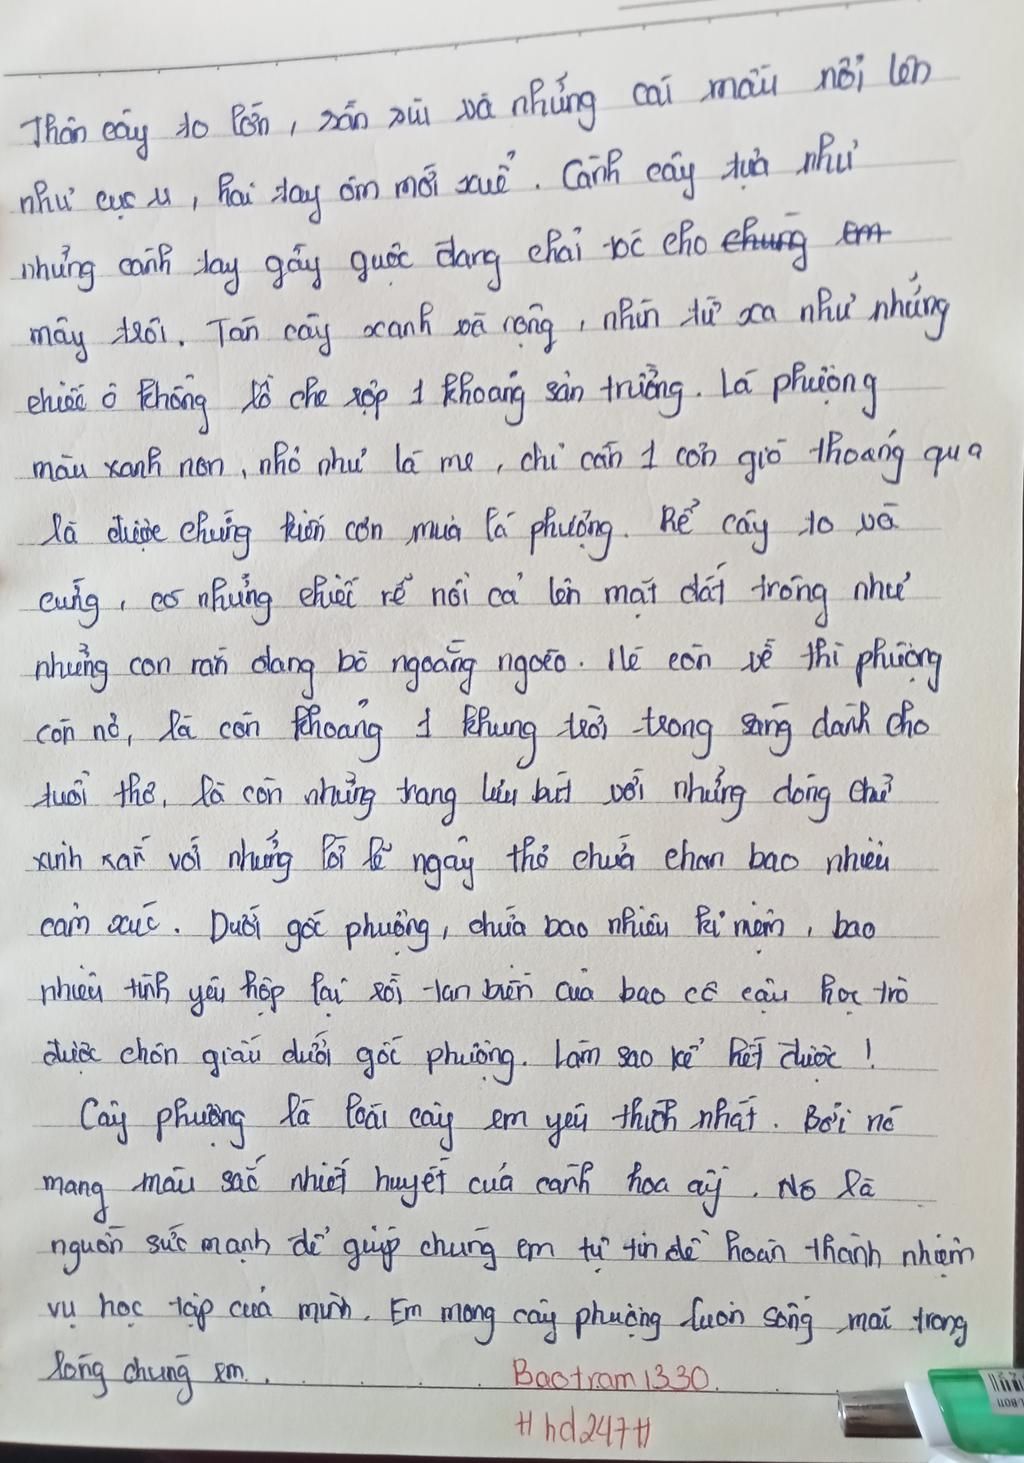 Thân cây to lớn, sần sùi và những cái mấu nổi lên
như cục u, hai tay ôm mới xuể. Cành cây tựa như
những cánh tay gầy guộc đang chải tóc cho chúng em
mây trôi. Tán cây xanh và rộng, nhìn từ xa như những
chiếc ô khổng lồ che rợp 1 khoảng sân trường. Lá phượng
màu xanh non, nhỏ như lá me, chỉ cần 1 cơn gió thoảng qua
là được chứng kiến cơn mưa lá phượng. Rễ cây to và
cứng, có những chiếc rễ nổi cả lên mặt đất trông như
những con rắn đang bò ngoằng ngoèo. Hè còn về thì phượng
còn nở, là còn khoảng 1 khung trời trong sáng dành cho
tuổi thơ, là còn những trang lưu bút với những dòng chữ
xinh xắn với những lời lẽ ngây thơ chứa chan bao nhiêu
cảm xúc. Dưới gốc phượng, chứa bao nhiêu kỉ niệm, bao
nhiêu tình yêu hợp lại rồi tan biến của bao cô cậu học trò
được chôn giấu dưới gốc phượng. Làm sao kể hết được!
Cây phượng là loài cây em yêu thích nhất. Bởi nó
mang màu sắc nhiệt huyết của cánh hoa ấy. Nó là
nguồn sức mạnh để giúp chúng em tự tin để hoàn thành nhiệm
vụ học tập của mình. Em mong cây phượng luôn sống mãi trong
lòng chúng em.
Baotram1330.
#hd247#